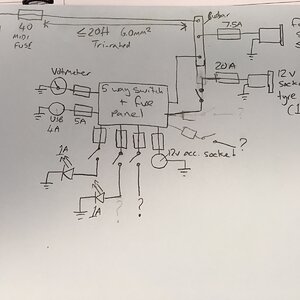 40
MIDI
FUSE
≤20ft 6.0mm²
Tri-rated
Busbar
7.5A
20A
12 v
Socket
type
(1
Voltmeter
5 way switch
+ fuse
panel
USB
4A
5A
1A
1A
12v acc. socket
?
?
?